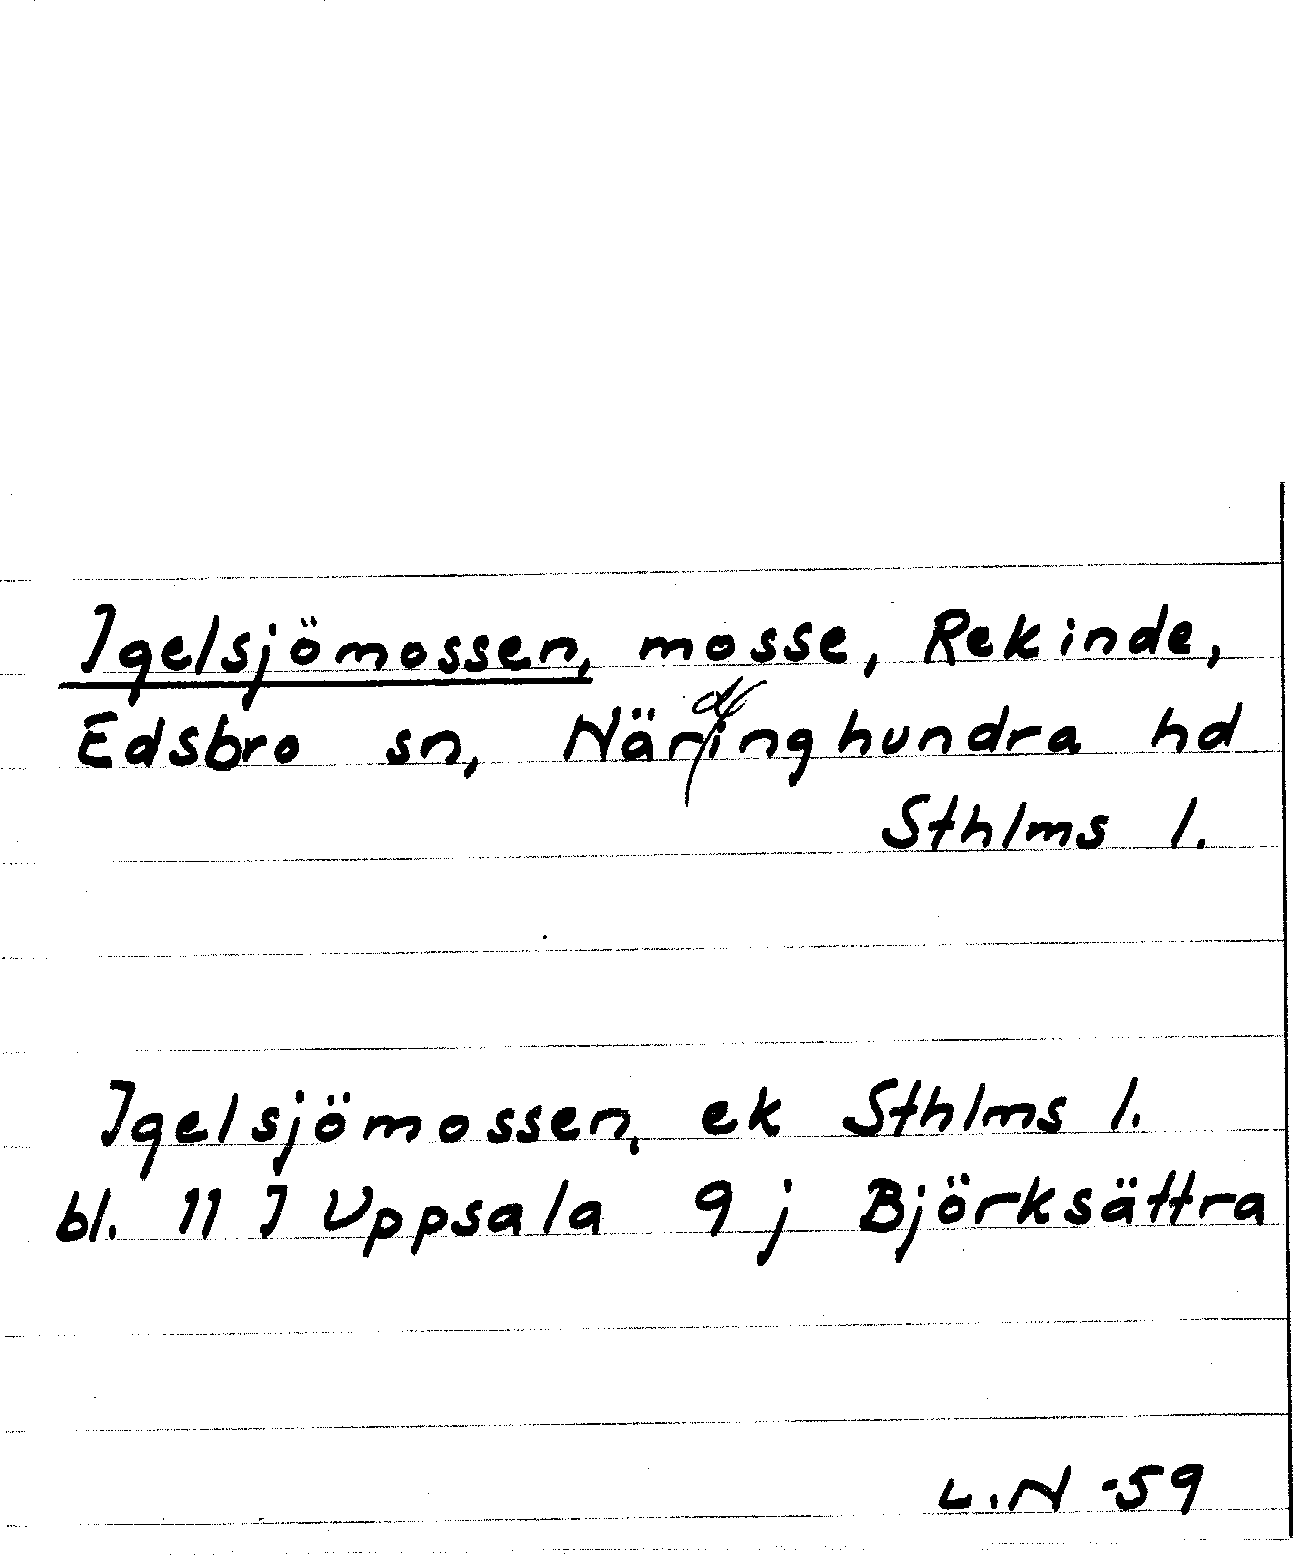 Igelsjömossen, mosse, Rekinde,
Edsbro sn, Närdinghundra hd
Sthlms l.
Igelsjömossen, ek Sthlms l.
bl. 11 I Uppsala 9 j Björksättra
L.N -59